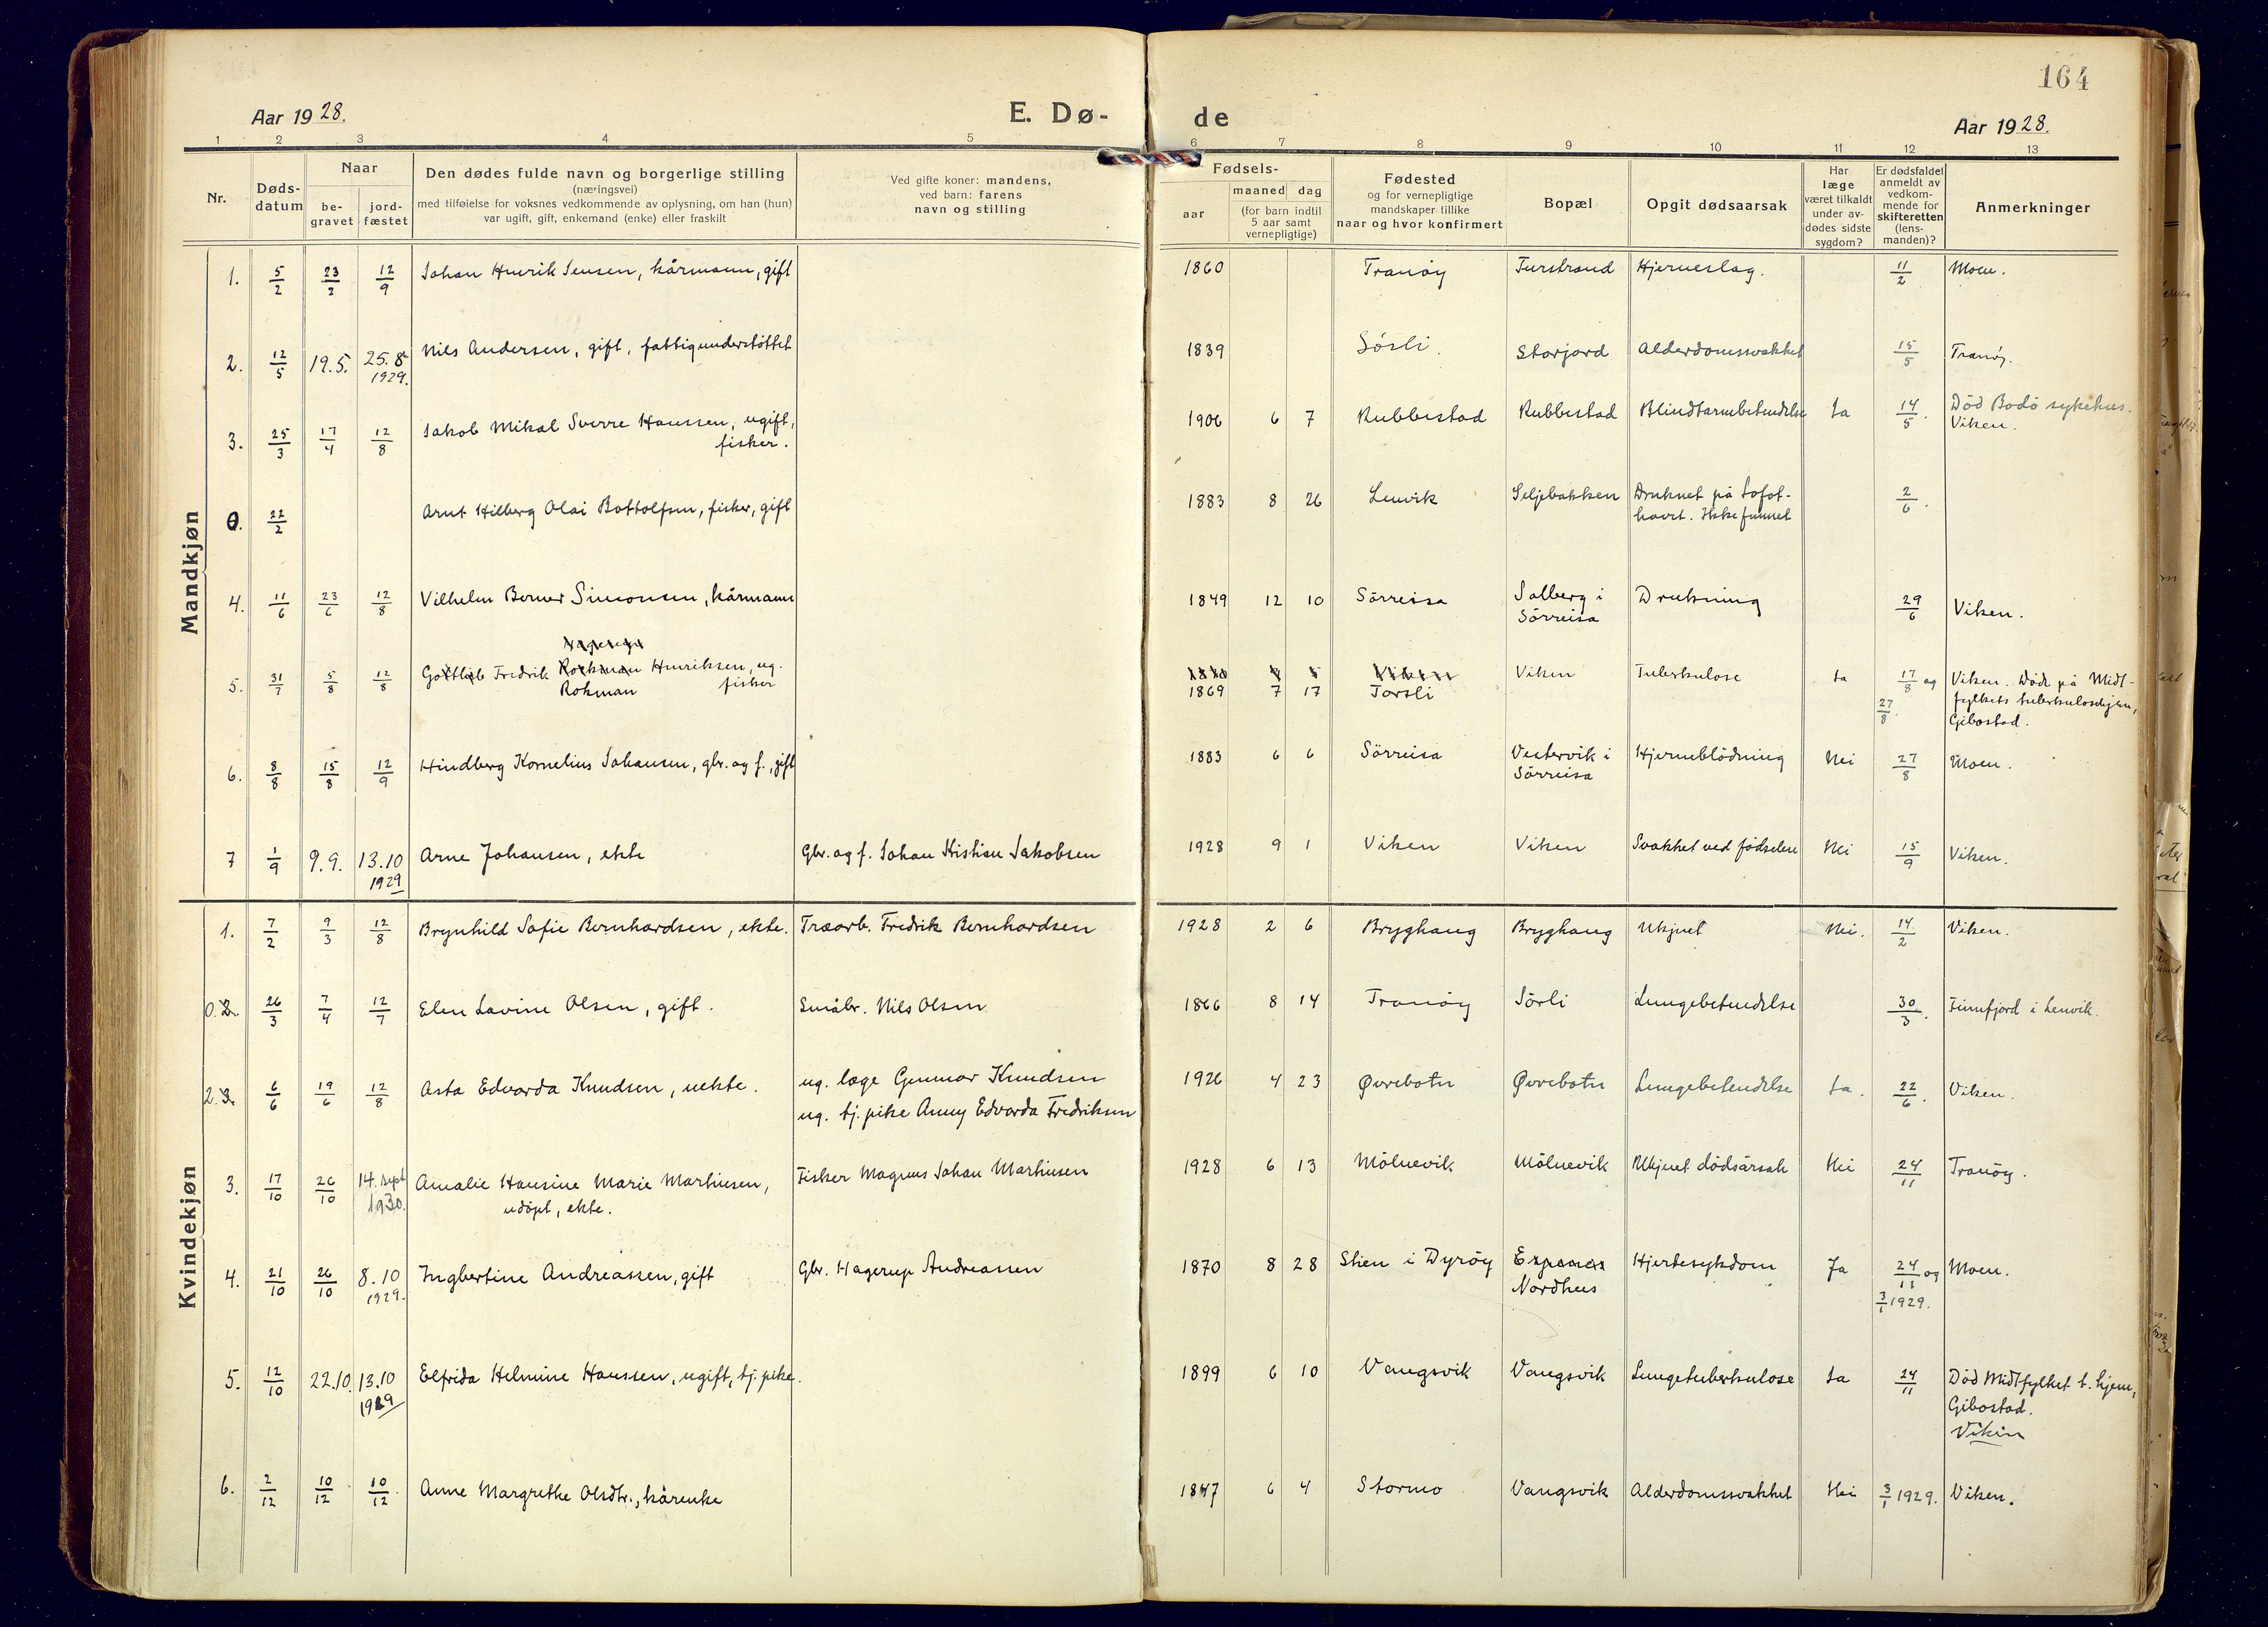 164
Aar 1928.
E. Dø-
de
Aar 1928.
1 2 3 4 5 6 7 8 9 10 11 12 13
Nr.
Døds-
datum
Naar
be-
gravet
jord-
fæstet
Den dødes fulde navn og borgerlige stilling
(næringsvei)
med tilføielse for voksnes vedkommende av oplysning, om han (hun)
var ugift, gift, enkemand (enke) eller fraskilt
Ved gifte koner: mandens,
ved barn: farens
navn og stilling
Fødsels-
aar
maaned dag
(for barn indtil
5 aar samt
vernepligtige)
Fødested
og for vernepligtige
mandskaper tillike
naar og hvor konfirmert
Bopæl
Opgit dødsaarsak
Har
læge
været tilkaldt
under av-
dødes sidste
sygdom?
Er dødsfaldet
anmeldt av
vedkom-
mende for
skifteretten
(lens-
manden)?
Anmerkninger
Mandkjøn
1. 5/2 23/2 12/9 Johan Henrik Jensen, kårmann, gift 1860 Tranöy Furstrand Hjerneslag. 11/2 Moen.
2. 12/5 19.5. 25.8 Nils Andersen, gift, fattigunderstöttet 1839 Sösli. Storjord Alderdomssvakhet 15/5 Tranöy.
1929.
3. 25/3 17/4 12/8 Jakob Mikal Sverre Hanssen, ugift, 1906 6 7 Rubbestad Rubbestad Blindtarmbetendelse Ja 14/5. Död Bodö sykehus.
fisker. Viken.
0. 22/2 Arnt Hilberg Olai Bottolfsen, fisker, gift 1883 8 26 Lenvik Seljebakken Druknet på Lofot- 2/6.
havet. Ikke funnet
4. 11/6 23/6 12/8 Vilhelm Berner Simonsen, kårmann 1849 12 10 Sörreisa Solberg i Drukning 29/6 Viken.
Sörreisa
5. 31/7 5/8 12/8 Gottlieb Fredrik Rockman Henriksen, ug. Viken Tuberkulose Ja 17/8 og Viken. Död på Midt-
Rokman fisker 1869 7 17 Torsli 27/8. fylkets tuberkulosehjem,
Gibostad.
6. 8/8 15/8 12/9 Hindberg Kornelius Johansen, gbr. og f., gift 1883 6 6 Sörreisa Vestervik i Hjerneblödning Nei 27/8 Moen.
Sörreisa
7 1/9 9.9. 13.10 Arne Johansen, ekte Gbr. og f. Johan Kristian Jakobsen 1928 9 1 Viken Viken Svakhet ved födselen Nei 15/9 Viken.
1929
Kvindekjøn
1. 7/2 9/3 12/8 Brynhild Sofie Bernhardsen, ekte. Træarb. Fredrik Bernhardsen 1928 2 6 Bryghaug Bryghaug Ukjent Nei. 14/2 Viken.
0.2. 26/3 7/4 12/7 Elen Lavine Olsen, gift. Småbr. Nils Olsen 1866 8 14 Tranöy Sörli Lungebetendelse 30/3. Finnfjord i Lenvik.
2.3. 6/6 19/6 12/8 Asta Edvarda Knudsen, uekte. ug. læge Gunnar Knudsen 1926 4 23 Øvrebotn Øvrebotn Lungebetendelse Ja. 22/6. Viken.
ug. tj. pike Anny Edvarda Fredriksen
3. 17/10 26/10 14. sept Amalie Hansine Marie Martinsen, Fisker Magnus Johan Martinsen 1928 6 13 Mölnevik Mölnevik Ukjent dödsårsak Nei 24/11 Tranöy.
1930. udöpt, ekte.
4. 21/10 26/10 8.10 Ingbertine Andreassen, gift Gbr. Hagerup Andreassen 1870 8 28 Stien i Dyröy Espenes Hjertesykdom Ja 24/11 og Moen.
1929. Nordhus 3/1 1929.
5. 12/10 22.10. 13.10 Elfrida Helmine Hanssen, ugift, tj. pike. 1899 6 10 Vangsvik Vangsvik Lungetuberkulose Ja 24/11 Död Midtfylket t. hjem,
1929 Gibostad.
Viken
6. 2/12 10/12 10/12. Anne Margrethe Olsdtr., kårenke 1847 6 4 Stormo Vangsvik Alderdomssvakhet Nei 3/1 1929. Viken.